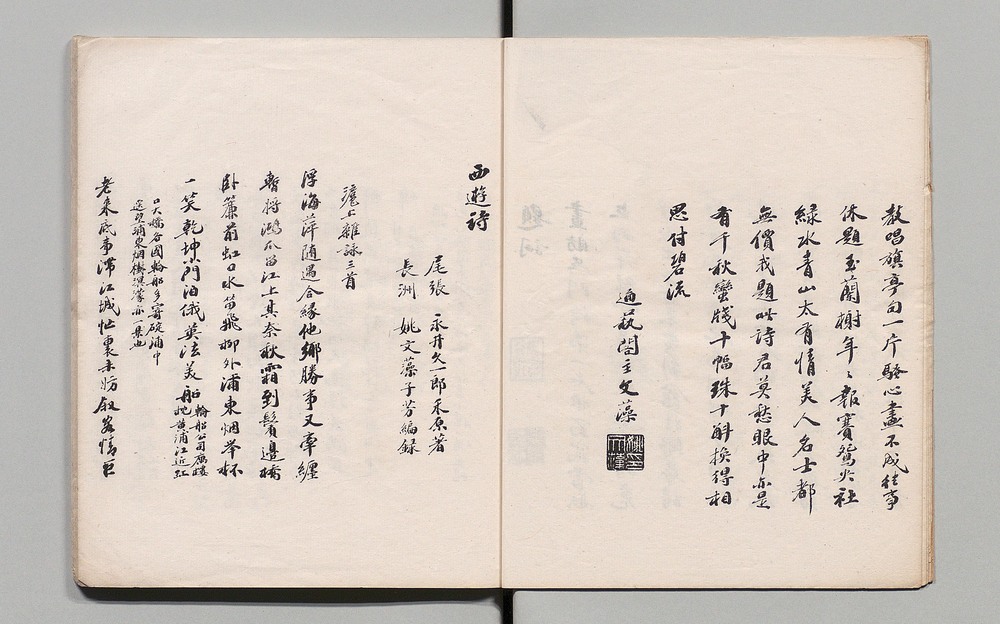 教唱旗亭句一片騷心盡不成往事
休題玉蘭榭年〻報賽鴛火社
綠水青山太有情美人名士都
無價我題此詩君莫愁眼中亦是
有千秋蠻牋十幅珠十斛換得相
思付碧流
文藻
西遊詩
尾張 永井久一郎禾原著
長洲 姚文藻子芳編錄
滬上雜詠三首
浮海萍隨遇合緣他鄉勝事又牽纏
暫將鴻爪留江上其奈秋霜到鬢邊橋
臥簾前虹口水笛飛柳外浦東烟举杯
一笑乾坤小門泊俄英法美船
輪船公司
黃浦江近虹
口大橋各國輪船多寄碇浦中
浦東烟
老來底事滯江城忙裏未妨叙客情